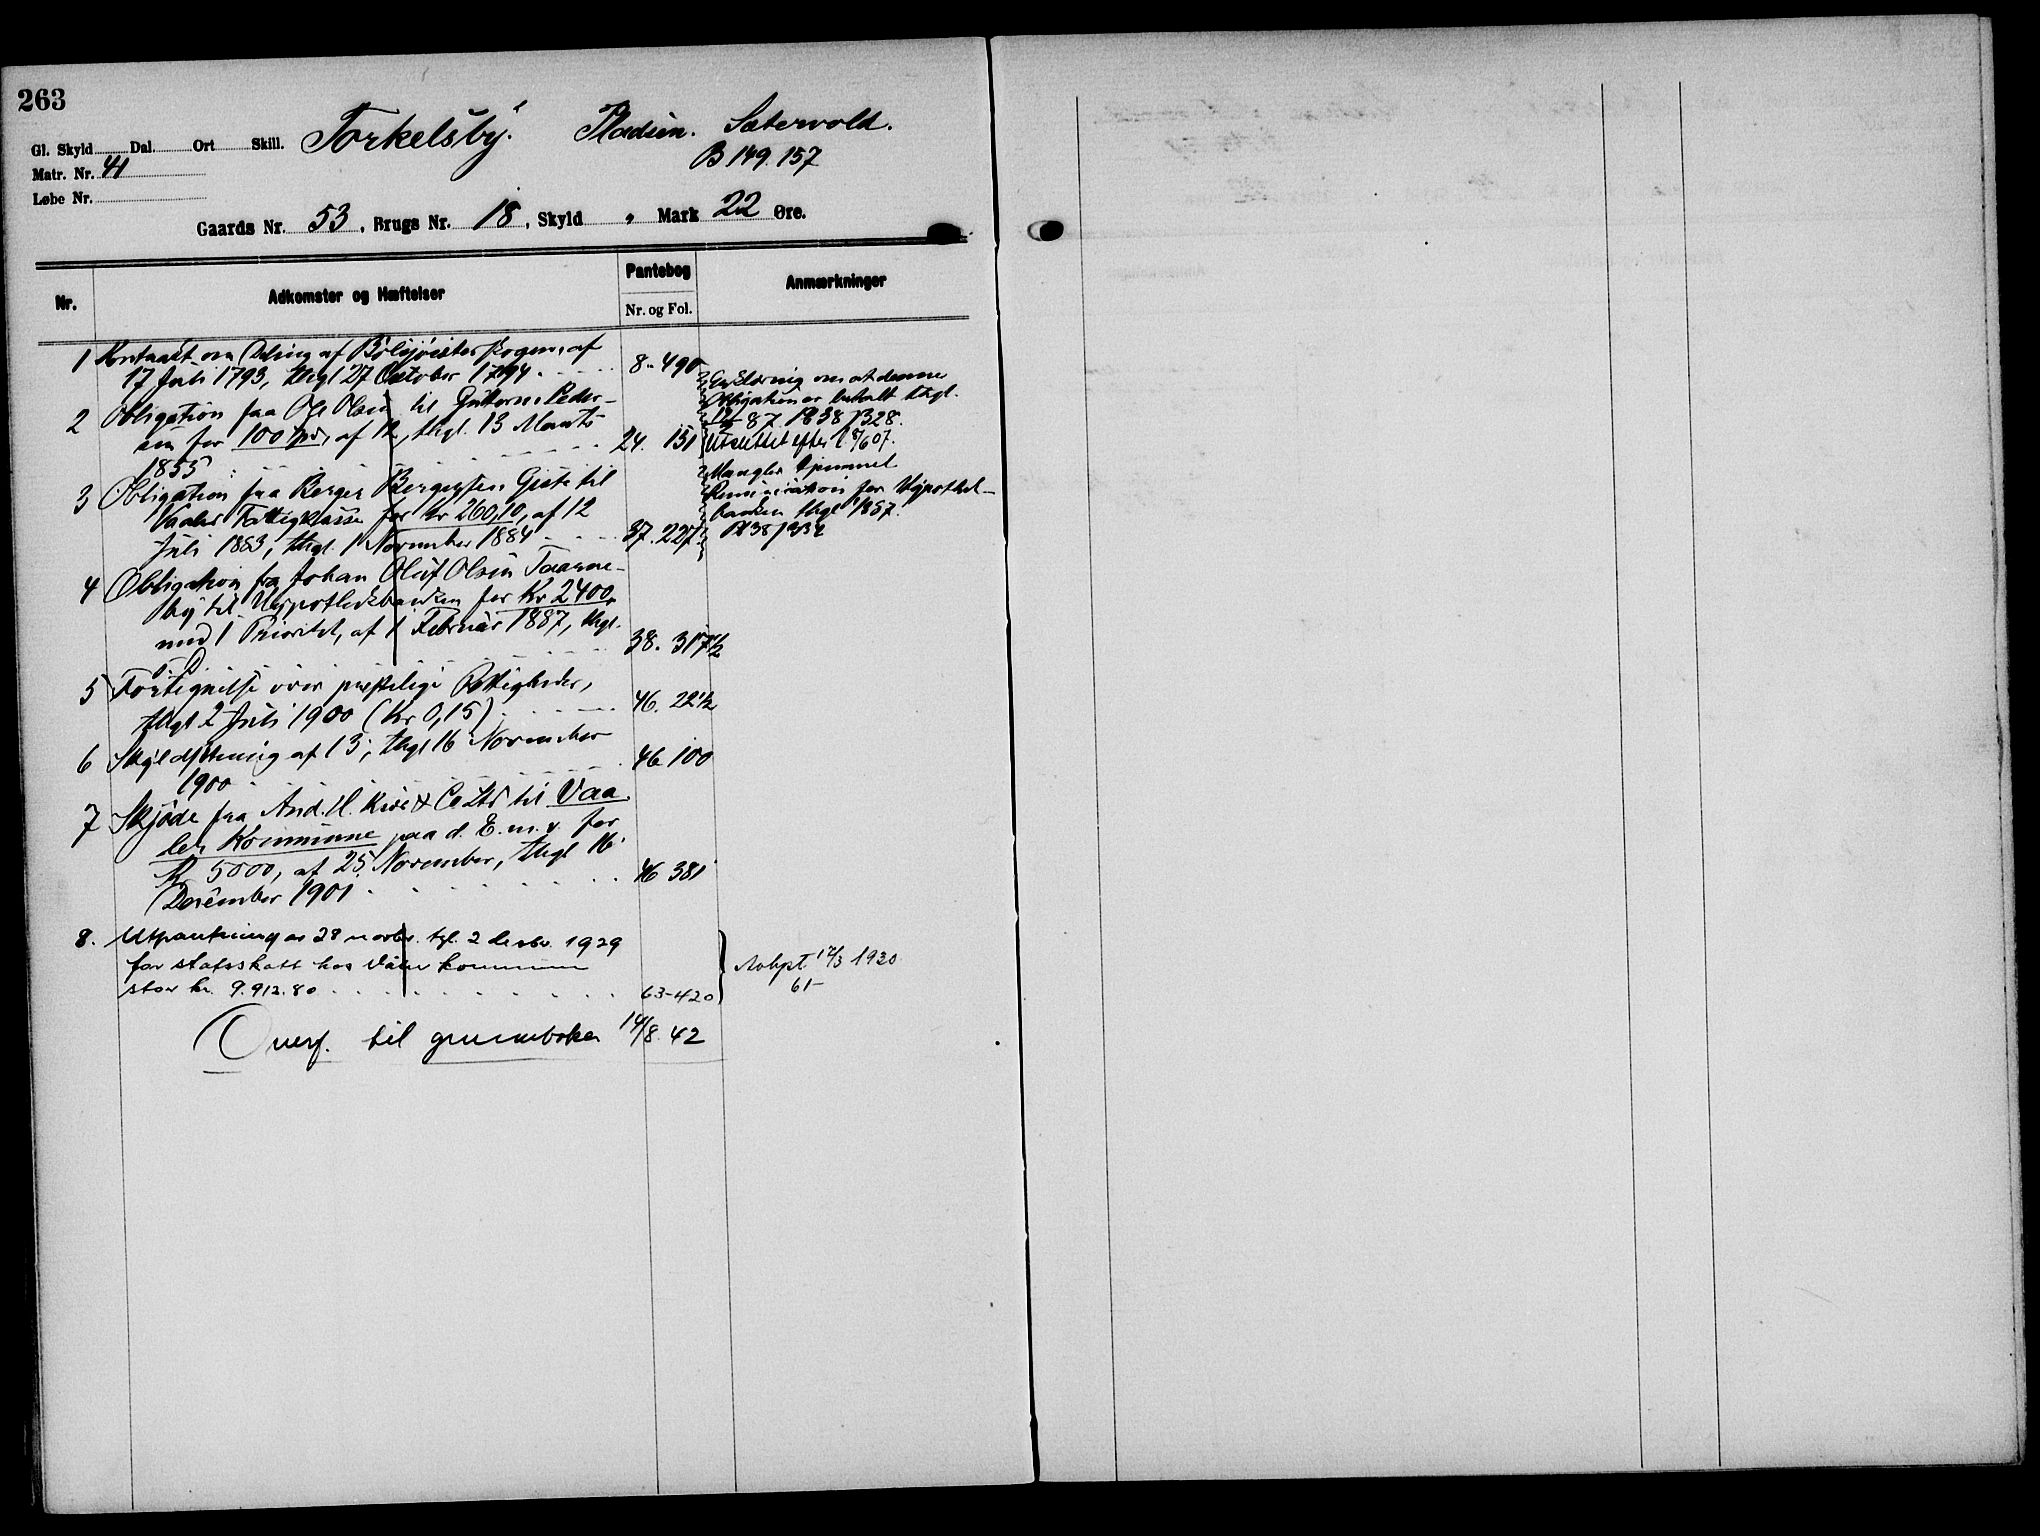 263
Gl. Skyld Dal. Ort Skill. Torkelsby. Pladsen. Sætervold.
B 149. 157
Matr. Nr. 41
Løbe Nr.
Gaards Nr. 53, Brugs Nr. 18, Skyld " Mark 22 Øre.
Nr. Adkomster og Hæftelser Pantebog Anmærkninger
Nr. og Fol.
1 Kontrakt om Deling af af
17 Juli 1793, thgl 27 October 1794. 8. 490
2 Obligation fra Ole Olsen til Guttorm Peder-
sen for 100 Spd, af 12, thgl. 13 Marts
1855 24. 151
Erklæring om at denne
Obligation er betalt thgl.
87. PB 38 328.
Udslettet efter
3 Obligation fra Berger Bergersen til
Vaaler Fattigkasse for Kr 260,10, af 12
Juli 1883, thgl. 1 November 1884 37. 227.
Mangler
for Hypothek-
banken thgl
Pb 38
4 Obligation fra Johan Oluf Olsen Taarne-
by til Hypothekbanken for Kr 2400,
med 1 Prioritet, af 1 Februar 1887, thgl.
s. D. 38. 317½
5 Fortegnelse over præstelige Rettigheder,
thgl 2 Juli 1900 (Kr 0,15) 46. 22½
6 Skyldsætning af 13, thgl 16 November
1900 46 100
7 Skjøde fra And. H. Kiær & Co Ltd til Vaa-
ler Kommune paa d. E. m. v. for
Kr 5000, af 25 November, thgl 16
December 1901 46 381
8. Utpantning av 28 novbr. tgl. 2 desbr. 1929
for statsskatt hos Våler kommune
stor kr. 9.912.80 63-420
Avlyst 12/3 1930
61-
Overf. til grunnboken 14/8. 42